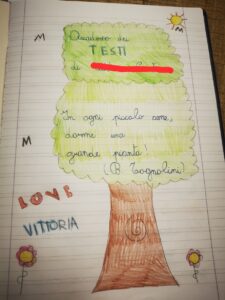 Quaderno dei
M
TESTI
M
di
In ogni piccolo seme,
M
dorme una
grande pianta!
(B Tognolini)
LOVE
VITTORIA